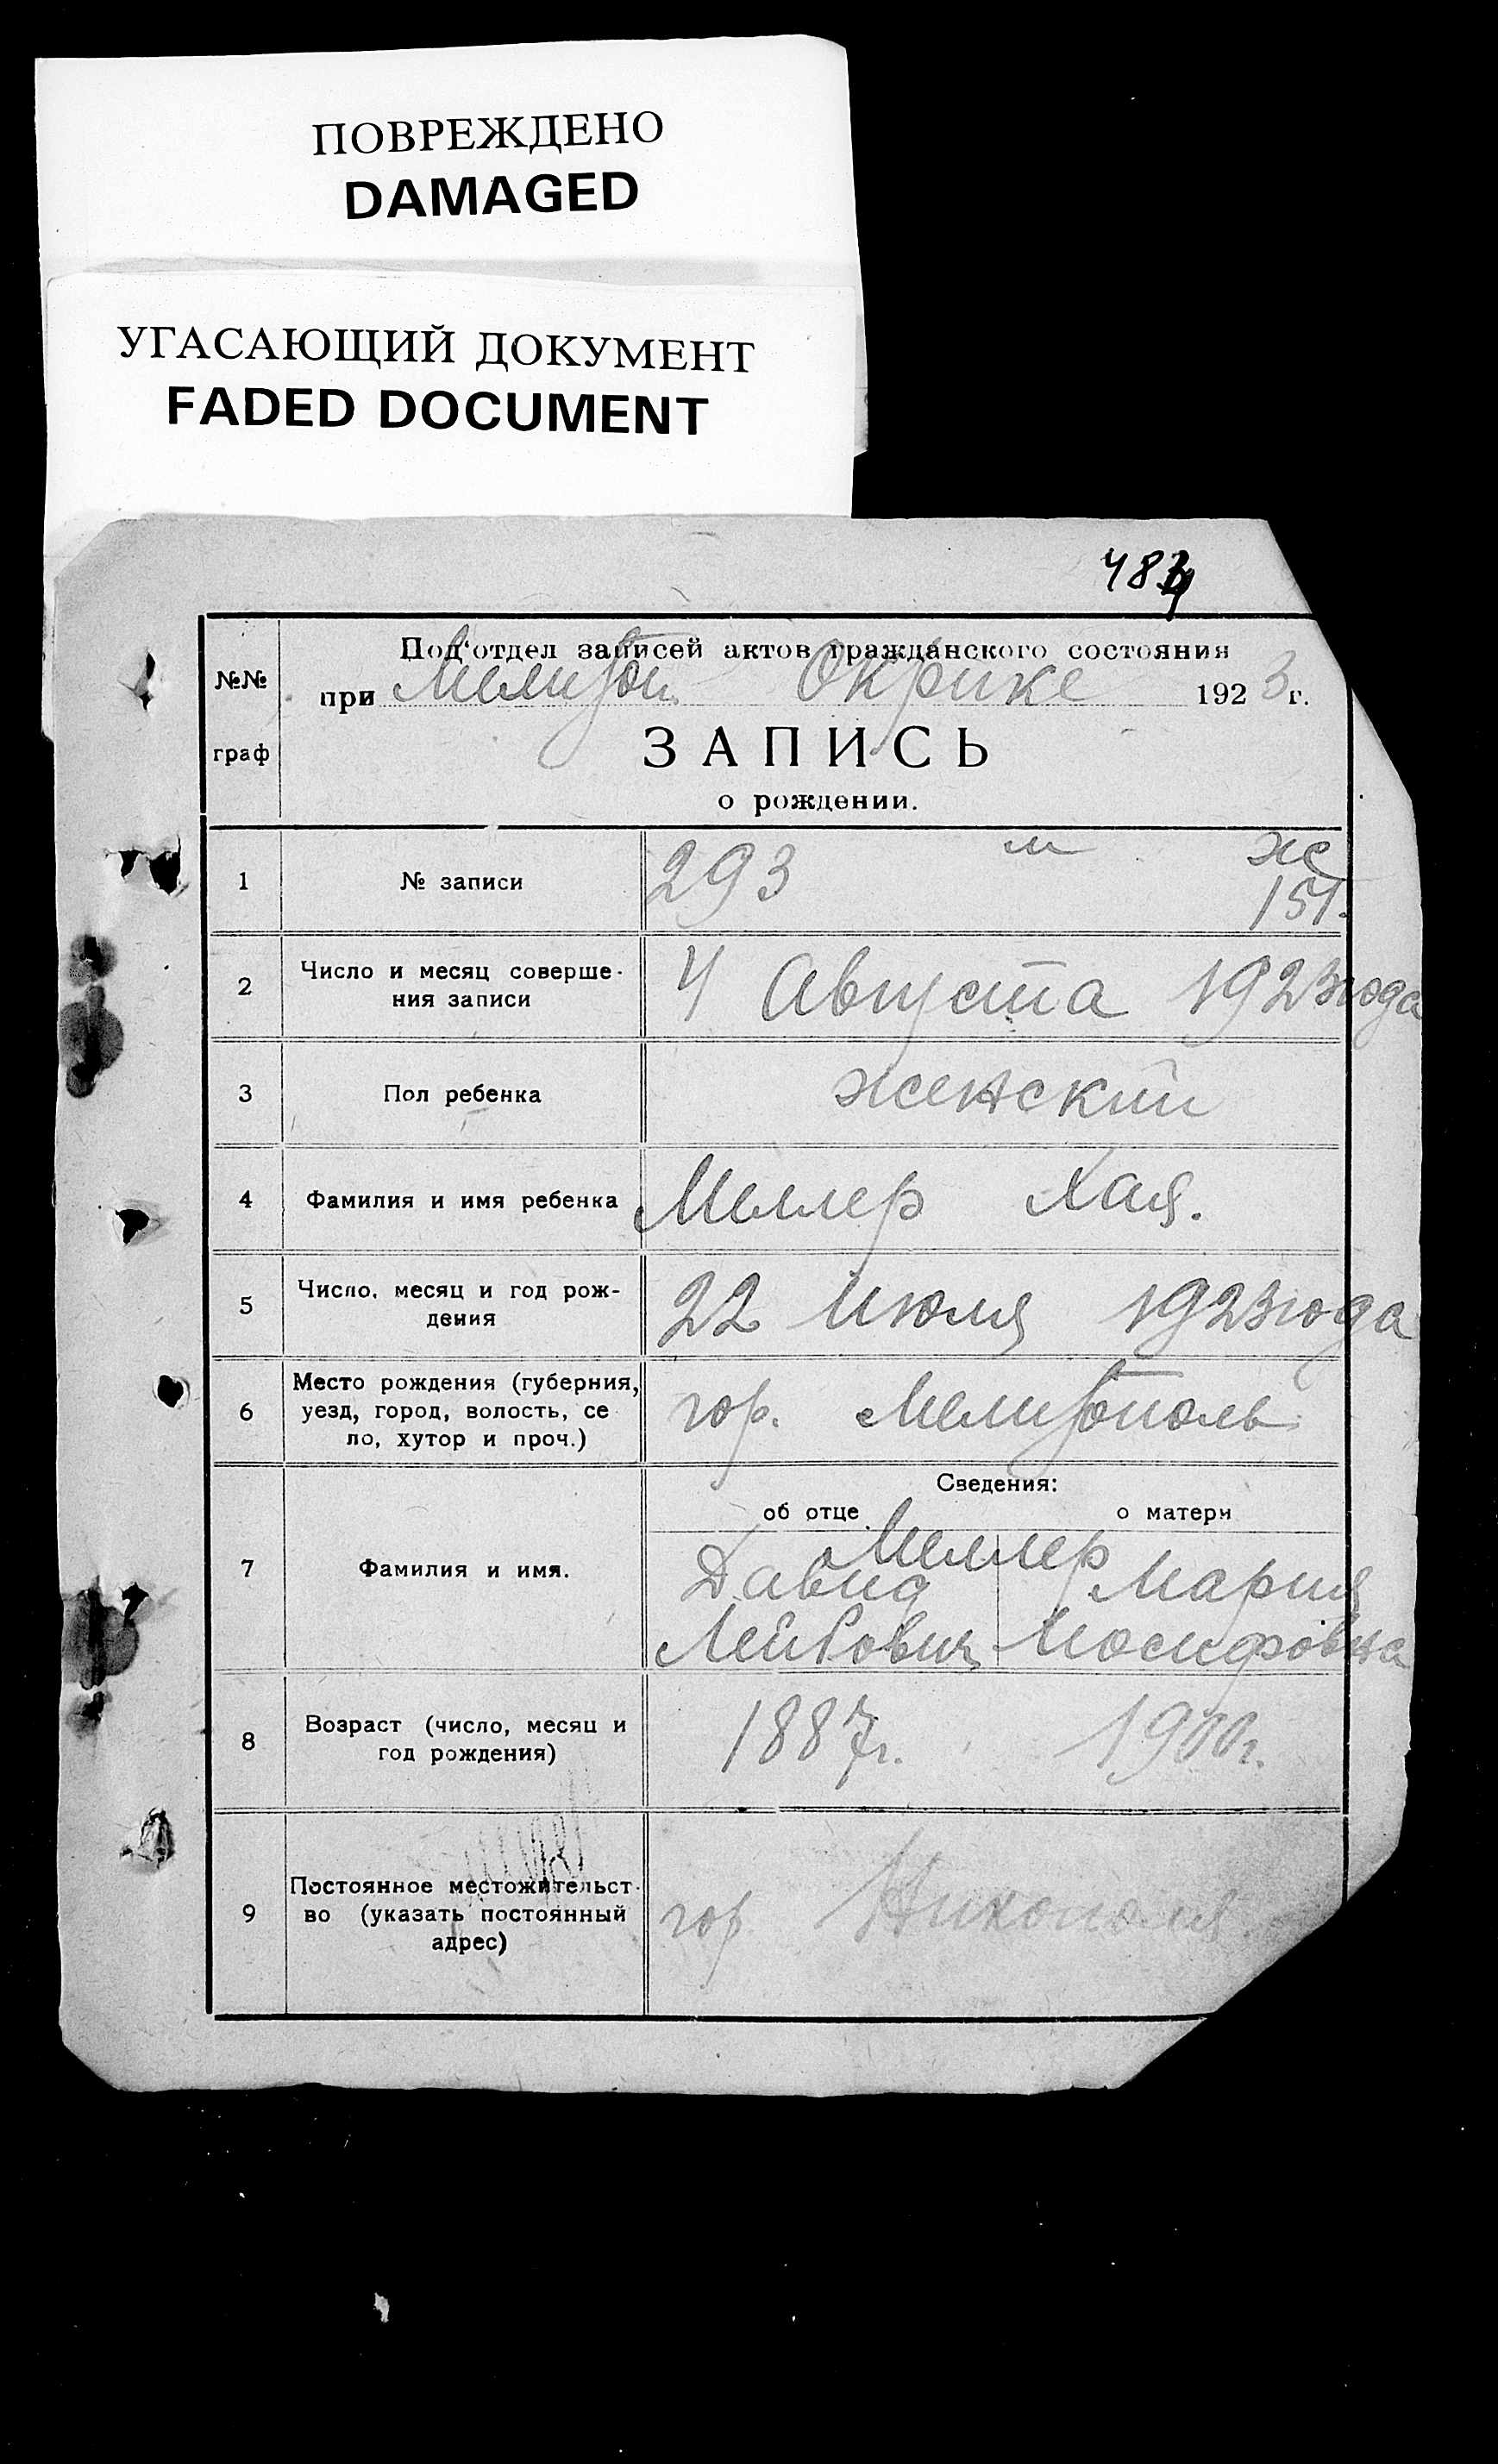 ПОВРЕЖДЕНО
DAMAGED
УГАСАЮЩИЙ ДОКУМЕНТ
FADED DOCUMENT
№№
граф
Под‘отдел записей актов гражданского состояния
при Мелитоп. Окрике 1923 г.
ЗАПИСЬ
о рождении.
м же
1 № записи 293 151.
2 Число и месяц соверше-
ния записи
4 Августа 1923 года
3 Пол ребенка женский
4 Фамилия и имя ребенка Меллер Хая.
5 Число, месяц и год рож-
дения
22 Июля 1923 года
6 Место рождения (губерния,
уезд, город, волость, се
ло, хутор и проч.)
гор. Мелитополь
Сведения:
об отце о матери
7 Фамилия и имя.
Меллер
Давид Мария
Лейбович Иосифовна
8 Возраст (число, месяц и
год рождения)
1887г. 1900г.
9 Постоянное местожительст-
во (указать постоянный
адрес)
гор. Никополя